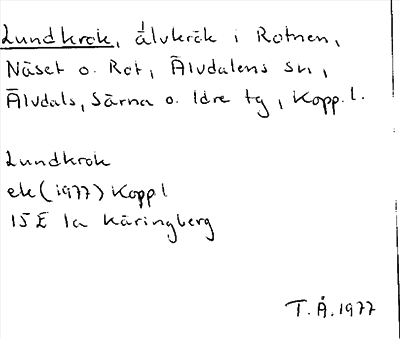 Lundkrok, älvkrök i Rotnen,
Näset o. Rot, Älvdalens sn,
Älvdals, Särna o. Idre tg, Kopp.l.
Lundkrok
ek (1977) Kopp l
15E 1a Käringberg
T.Å.1977